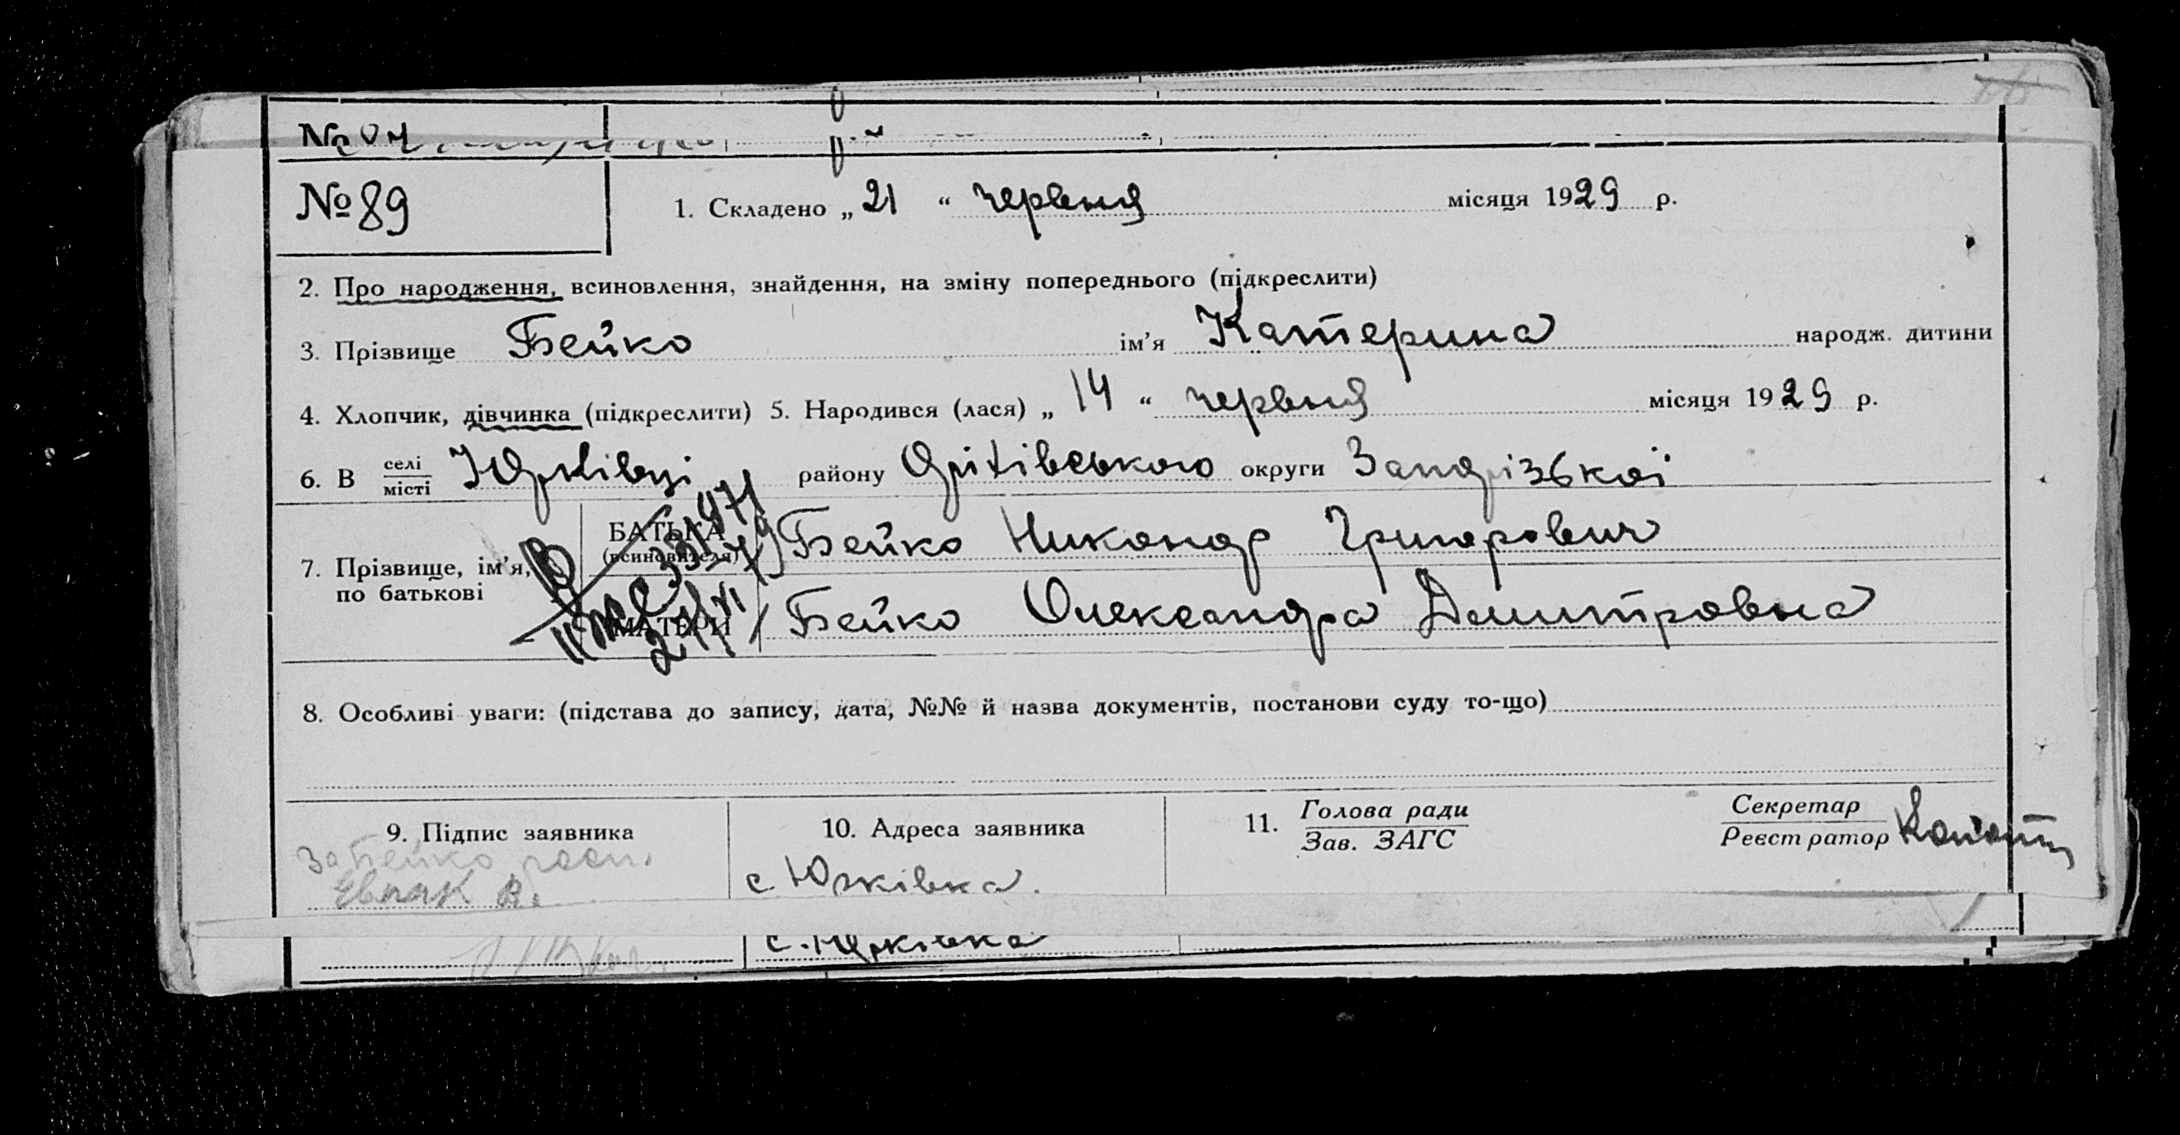 № 89
1. Складено „ 21 “ червня місяця 1929 р.
2. Про народження, всиновлення, знайдення, на зміну попереднього (підкреслити)
3. Прізвище Бейко ім’я Катерина народж. дитини
4. Хлопчик, дівчинка (підкреслити) 5. Народився (лася) „ 14 “ червня місяця 1929 р.
6. В селі
місті Юрківці району Оріхівського округи Запорізької
7. Прізвище, ім’я, по батькові
БАТЬКА
(всиновителя)
Бейко Никонор Григорович
МАТЕРИ
Бейко Олександра Дмитровна
8. Особливі уваги: (підстава до запису, дата, №№ й назва документів, постанови суду то-що)
9. Підпис заявника
За Бейко
10. Адреса заявника
с. Юрківка.
11. Голова ради
Зав. ЗАГС
Секретар
Реєстратор
с. Юрківка